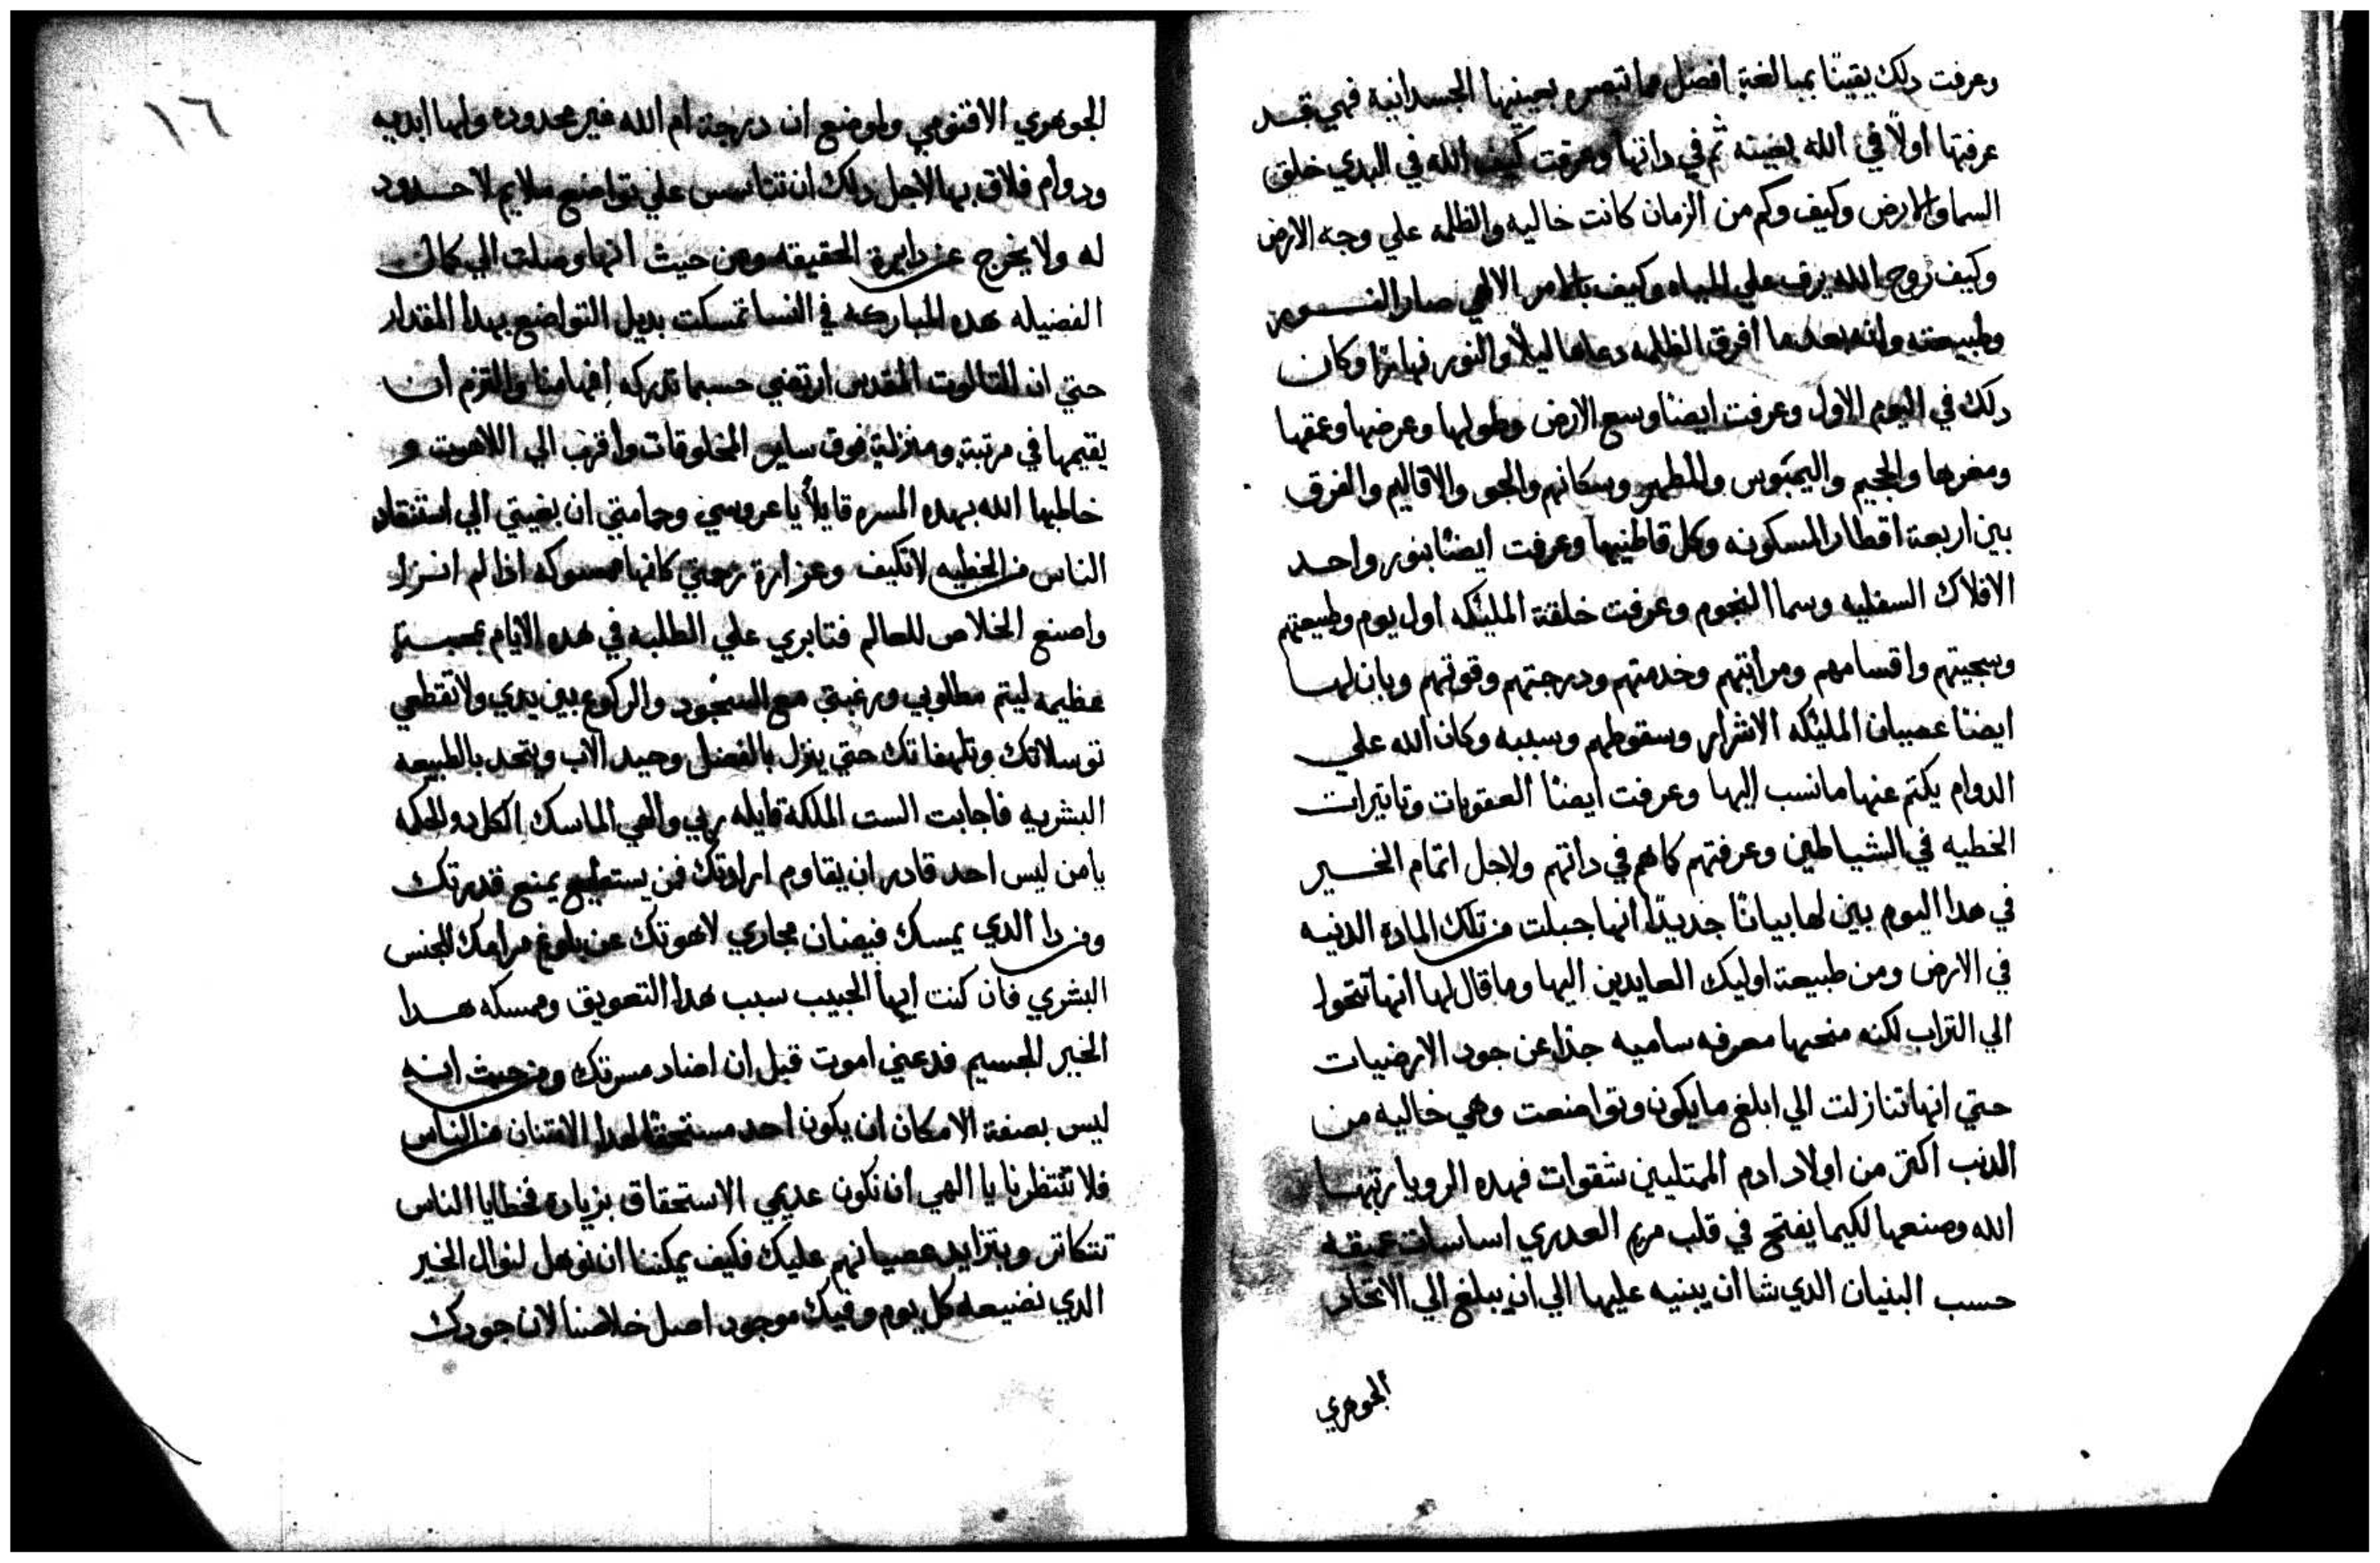 وعرفت دلك يقينًا بمبالغة افضل مما تبصره بعينيها الجسدانية فهي قد
عرفتها اولاً في الله بغيته ثم في داتها وعرفت كيف الله في البدي خلق
السما والارض وكيف وكم من الزمان كانت خاليه والظلمه علي وجه الارض
وكيف روح الله يرف علي المياه وكيف بالامر الالهي صار النور
وطبيعته وانه بعدما افرق الظلمه دعاها ليلاً والنور نهارًا وكان
دلك في اليوم الاول وعرفت ايضًا وسع الارض وطولها وعرضها وعمقها
ومغرها والجحيم واليمبوس والمطهر وسكانهم والجو والاقاليم والفرق
بين اربعة اقطار المسكونه وكل قاطنيها وعرفت ايضًا بنور واحد
الافلاك السفليه وسما النجوم وعرفت خلقة المليكه اول يوم وطبيعتهم
وسجيتهم واقسامهم ومراتبهم وخدمتهم ودرجتهم وقوتهم وبان لها
ايضًا عصيان المليكه الاشرار وسقوطهم وسببه وكان الله علي
الدوام يكتم عنها ما نسب اليها وعرفت ايضًا العقوبات وتاتيرات
الخطيه في الشياطين وعرفتهم كما هم في داتهم ولاجل اتمام الخير
في هدا اليوم بين لها بيانًا جديدًا انها جبلت من تلك المادة الدنيه
في الارض ومن طبيعة اوليك العايدين اليها وما قال لها انها تتحول
الي التراب لكنه منحها معرفه ساميه جدًا عن جود الارضيات
حتي انها تنازلت الي ابلغ ما يكون وتواضعت وهي خاليه من
الدنب اكتر من اولاد ادم الممتليين شقوات فهده الرويا رتبها
الله وصنعها لكيما يفتح في قلب مريم العدري اساسات عميقه
حسب البنيان الدي شا ان يبنيه عليها الي ان يبلغ الي الاتحاد
الجوهري
١٦
الجوهري الاقنومي ولوضع ان درجة ام الله غير محدوده ولها ابديه
ودوام فلاق بها لاجل دلك ان تتاسس علي تواضع ملايم لا حدود
له ولا يخرج عن دايرة الحقيقه ومن حيث انها وصلت الي كمال
الفضيله هده المباركه في النسا تمسكت بديل التواضع بهدا المقدار
حتي ان التالوت المقدس ارتضي حسبما تدركه افهامنا والتزم ان
يقيمها في مرتبة ومنزلة فوق ساير المخلوقات واقرب الي اللاهوت و
خاطبها الله بهده المسره قايلاً يا عروستي وحمامتي ان بغيتي الي استنقاد
الناس من الخطيه لا تكيف وغزارة رحمتي كانها ممسوكه اذا لم انزل
واصنع الخلاص للعالم فتابري علي الطلبه في هده الايام بمحبة
عظيمه ليتم مطلوبي ورغبتي مع السجود والركوع بين يدي ولا تقطعي
توسلاتك وتلهفاتك حتي ينزل بالفضل وحيد الاب ويتحد بالطبيعه
البشريه فاجابت الست الملكة قايله ربي والهي الماسك الكل دو الحكمه
يا من ليس احد قادر ان يقاوم ارادتك فمن يستطيع يمنع قدرتك
ومن دا الدي يمسك فيضان مجاري لاهوتك عن بلوغ مرامك للجنس
البشري فان كنت ايها الحبيب سبب هدا التعويق وممسكه هدا
الخير الجسيم فدعني اموت قبل ان اضاد مسرتك ومن حيث انه
ليس بصفة الامكان ان يكون احد مستحقًا لهدا الامتنان من الناس
فلا تنتظرنا يا الهي ان نكون عديمي الاستحقاق بزيادة فخطايا الناس
تتكاتر ويتزايد عصيانهم عليك فكيف يمكننا ان نوهل لنوال الخير
الدي نضيعه كل يوم وفيك موجود اصل خلاصنا لان جودك